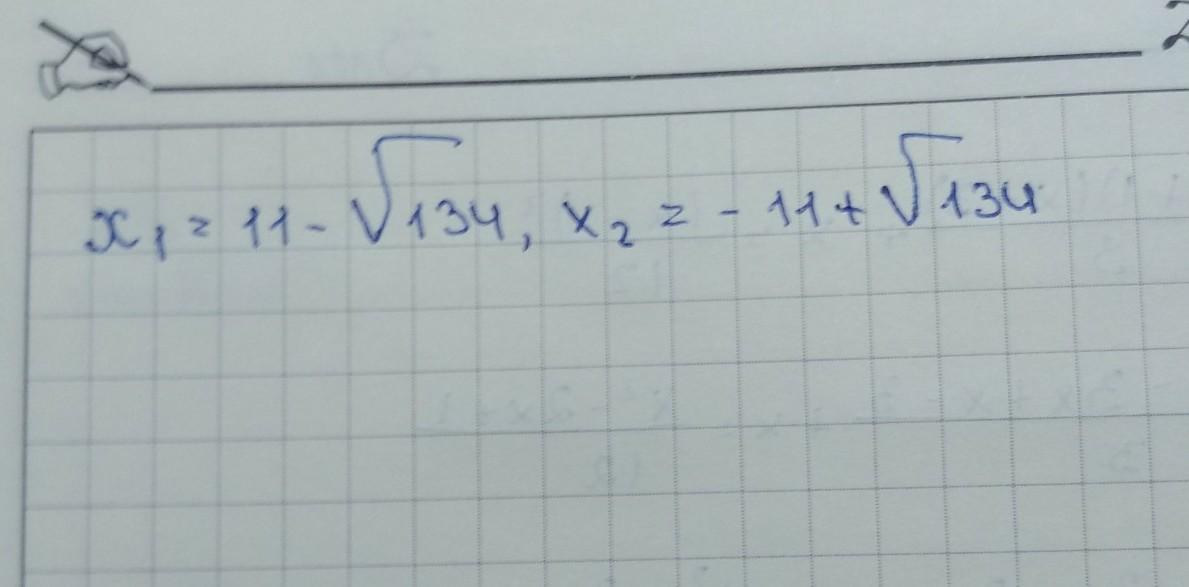 x₁ = 11 - √134, x₂ = - 11 + √134